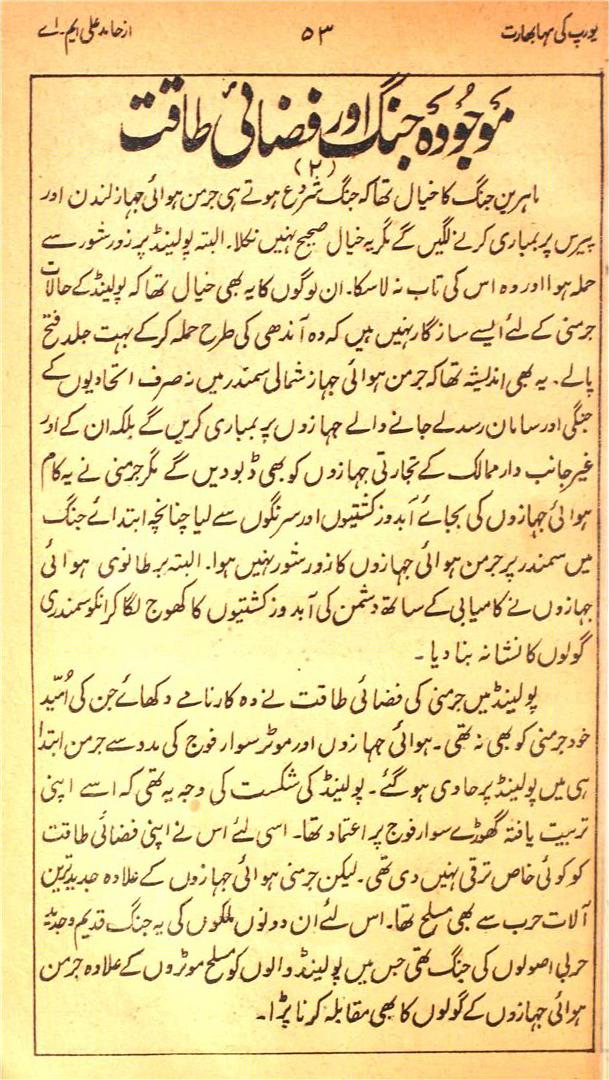 یورپ کی مہا بھارت ۵۳ از حامد علی ایم۔اے
موجودہ جنگ اور فضائی طاقت
(۲)
ماہرین جنگ کا خیال تھا کہ جنگ شروع ہوتے ہی جرمن ہوائی جہاز لندن اور
پیرس پر بمباری کرنے لگیں گے مگر یہ خیال صحیح نہیں نکلا۔ البتہ پولینڈ پر زور شور سے
حملہ ہوا اور وہ اس کی تاب نہ لا سکا۔ ان لوگوں کا یہ بھی خیال تھا کہ پولینڈ کے حالات
جرمنی کے لئے ایسے ساز گار نہیں ہیں کہ وہ آندھی کی طرح حملہ کر کے بہت جلد فتح
پالے۔ یہ بھی اندیشہ تھا کہ جرمن ہوائی جہاز شمالی سمندر میں نہ صرف اتحادیوں کے
جنگی اور سامان رسد لے جانے والے جہازوں پر بمباری کریں گے بلکہ ان کے اور
غیر جانب دار ممالک کے تجارتی جہازوں کو بھی ڈبو دیں گے مگر جرمنی نے یہ کام
ہوائی جہازوں کی بجائے آبدوز کشتیوں اور سرنگوں سے لیا چنانچہ ابتدائے جنگ
میں سمندر پر جرمن ہوائی جہازوں کا زور شور نہیں ہوا۔ البتہ برطانوی ہوائی
جہازوں نے کامیابی کے ساتھ دشمن کی آبدوز کشتیوں کا کھوج لگا کر انکو سمندری
گولوں کا نشانہ بنا دیا۔
پولینڈ میں جرمنی کی فضائی طاقت نے وہ کارنامے دکھائے جن کی اُمّید
خود جرمنی کو بھی نہ تھی۔ ہوائی جہازوں اور موٹر سوار فوج کی مدد سے جرمن ابتدا
ہی میں پولینڈ پر حاوی ہو گئے۔ پولینڈ کی شکست کی وجہ یہ تھی کہ اسے اپنی
تربیت یافتہ گھوڑے سوار فوج پر اعتماد تھا۔ اسی لئے اس نے اپنی فضائی طاقت
کو کوئی خاص ترقی نہیں دی تھی۔ لیکن جرمنی ہوائی جہازوں کے علاوہ جدید ترین
آلات حرب سے بھی مسلح تھا۔ اس لئے ان دونوں ملکوں کی یہ جنگ قدیم و جدید
حربی اصولوں کی جنگ تھی جس میں پولینڈ والوں کو مسلح موٹروں کے علاوہ جرمن
ہوائی جہازوں کے گولوں کا بھی مقابلہ کرنا پڑا۔